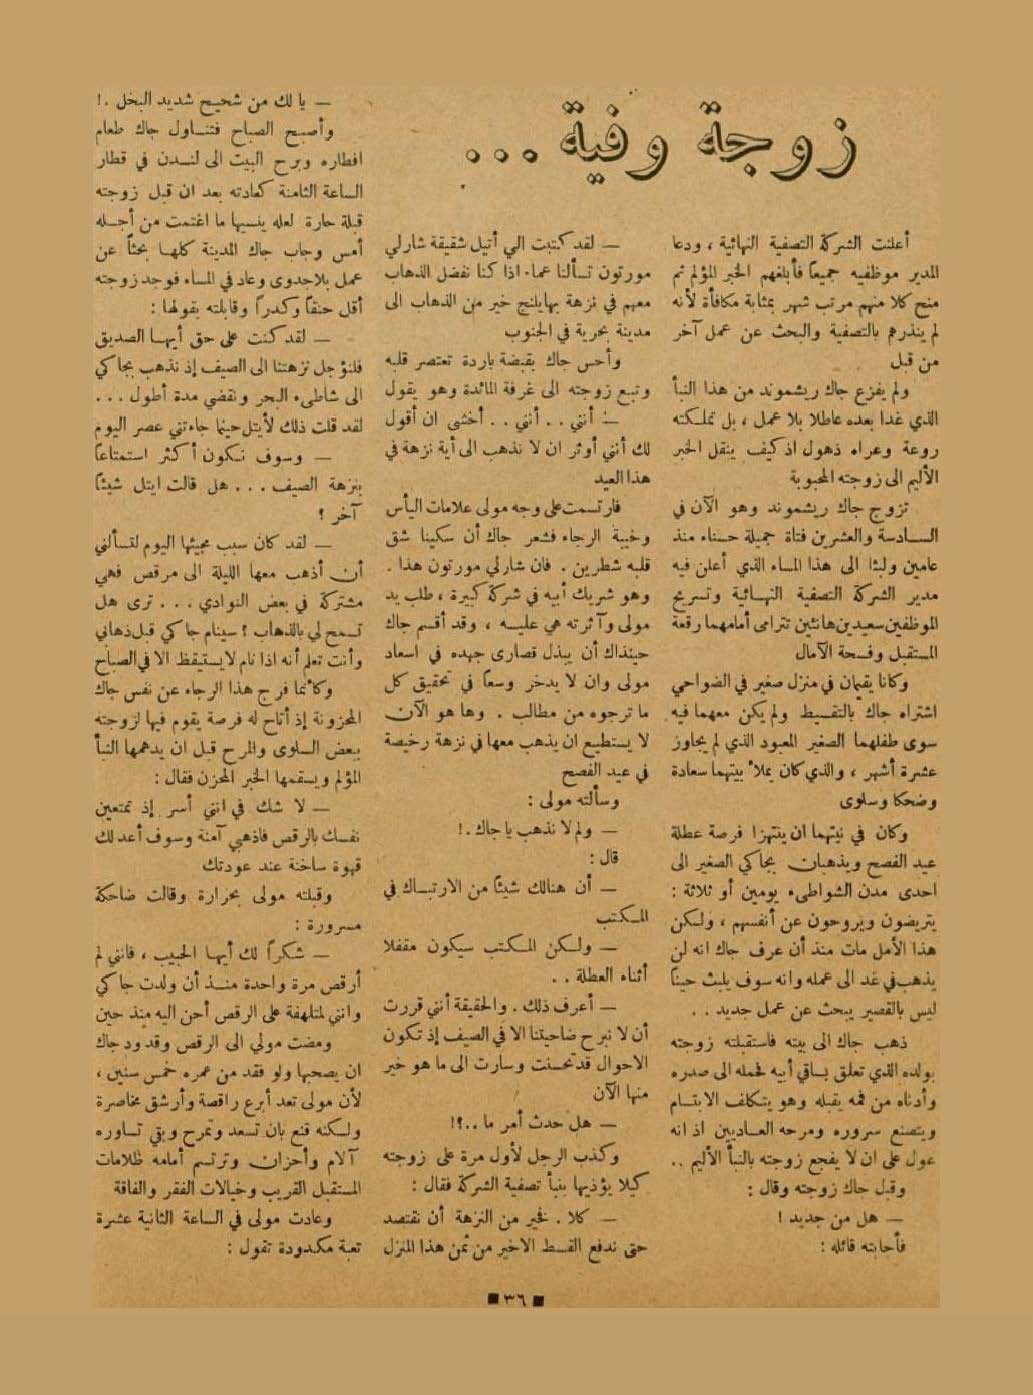 زوجة وفية ...
أعلنت الشركة التصفية النهائية ، ودعا
المدير موظفيه جميعاً فأبلغهم الخبر المؤلم ثم
منح كلا منهم مرتب شهر بمثابة مكافأة لأنه
لم ينذرهم بالتصفية والبحث عن عمل آخر
من قبل
ولم يفزع جاك ريشموند من هذا النبأ
الذي غدا بعده عاطلا بلا عمل ، بل تملكته
روعة وعراه ذهول اذ كيف ينقل الخبر
الأليم الى زوجته المحبوبة
تزوج جاك ريشموند وهو الآن في
السادسة والعشرين فتاة جميلة حسناء منذ
عامين ولبثا الى هذا المساء الذي أعلن فيه
مدير الشركة التصفية النهائية وتسريح
الموظفين سعيدين هانئين تترامى أمامهما رقعة
المستقبل وفسحة الآمال
وكانا يقيمان في منزل صغير في الضواحي
اشتراه جاك بالتقسيط ولم يكن معهما فيه
سوى طفلهما الصغير المعبود الذي لم يجاوز
عشرة أشهر ، والذي كان يملأ بيتهما سعادة
وضحكا وسلوى
وكان في نيتهما ان ينتهزا فرصة عطلة
عيد الفصح ويذهبان بجاكي الصغير الى
احدى مدن الشواطىء يومين أو ثلاثة :
يتريضون ويروحون عن أنفسهم ، ولكن
هذا الأمل مات منذ أن عرف جاك انه لن
يذهب في غد الى عمله وانه سوف يلبث حيناً
ليس بالقصير يبحث عن عمل جديد . .
ذهب جاك الى بيته فاستقبلته زوجته
بولده الذي تعلق بساقي أبيه فحمله الى صدره
وأدناه من فمه يقبله وهو يتكلف الابتسام
ويتصنع سروره ومرحه العاديين اذ انه
عول على ان لا يفجع زوجته بالنبأ الأليم ..
وقبل جاك زوجته وقال :
— هل من جديد !
فأجابته قائله :
— لقد كتبت الي أتيل شقيقة شارلي
مورتون تسألنا عما اذا كنا نفضل الذهاب
معهم في نزهة بهايلنج خير من الذهاب الى
مدينة بحرية في الجنوب
وأحس جاك بقبضة باردة تعتصر قلبه
وتبع زوجته الى غرفة المائدة وهو يقول
— أنني . . أنني . . أخشى ان أقول
لك أنني أوثر ان لا نذهب الى أية نزهة في
هذا العيد
فارتسمت على وجه مولى علامات اليأس
وخيبة الرجاء فشعر جاك أن سكينا شق
قلبه شطرين . فان شارلي مورتون هذا .
وهو شريك أبيه في شركة كبيرة ، طلب يد
مولى وآثرته هي عليه ، وقد أقسم جاك
حينذاك أن يبذل قصارى جهده في اسعاد
مولى وان لا يدخر وسعاً في تحقيق كل
ما ترجوه من مطالب . وها هو الآن
لا يستطيع ان يذهب معها في نزهة رخيصة
في عيد الفصح
وسألته مولى :
— ولم لا نذهب يا جاك .!
قال :
— أن هنالك شيئاً من الارتباك في
المكتب
— ولكن المكتب سيكون مقفلا
أثناء العطلة . .
— أعرف ذلك . والحقيقة أنني قررت
أن لا نبرح ضاحيتنا الا في الصيف إذ تكون
الاحوال قد تحسنت وسارت الى ما هو خير
منها الآن
— هل حدث أمر ما ..؟!
وكذب الرجل لأول مرة على زوجته
كيلا يؤذيها بنبأ تصفية الشركة فقال :
— كلا . فخير من النزهة أن نقتصد
حتى ندفع القسط الاخير من ثمن هذا المنزل
— يا لك من شحيح شديد البخل .!
وأصبح الصباح فتناول جاك طعام
افطاره وبرح البيت الى لندن في قطار
الساعة الثامنة كعادته بعد ان قبل زوجته
قبلة حارة لعله ينسيها ما اغتمت من أجله
أمس وجاب جاك المدينة كلها بحثاً عن
عمل بلا جدوى وعاد في المساء فوجد زوجته
أقل حنقاً وكدراً وقابلته بقولها :
— لقد كنت على حق أيها الصديق
فلنؤجل نزهتنا الى الصيف إذ نذهب بجاكي
الى شاطىء البحر ونقضي مدة أطول ...
لقد قلت ذلك لأيتل حينما جاءتني عصر اليوم
— وسوف نكون أكثر استمتاعاً
بنزهة الصيف ... هل قالت ايتل شيئاً
آخر ؟
— لقد كان سبب مجيئها اليوم لتسألني
أن أذهب معها الليلة الى مرقص فهي
مشتركة في بعض النوادي ... ترى هل
تسمح لي بالذهاب ؟ سينام جاكي قبل ذهابي
وأنت تعلم أنه اذا نام لا يستيقظ الا في الصباح
وكأنما فرج هذا الرجاء عن نفس جاك
المحزونة إذ أتاح له فرصة يقوم فيها لزوجته
ببعض السلوى والمرح قبل ان يدهمها النبأ
المؤلم ويسقمها الخبر المحزن فقال :
— لا شك في انني أسر إذ تمتعين
نفسك بالرقص فاذهبي آمنة وسوف أعد لك
قهوة ساخنة عند عودتك
وقبلته مولى بحرارة وقالت ضاحكة
مسرورة :
— شكراً لك أيها الحبيب ، فانني لم
أرقص مرة واحدة منذ أن ولدت جاكي
وانني لمتلهفة على الرقص أحن اليه منذ حين
ومضت مولي الى الرقص وقد ود جاك
ان يصحبها ولو فقد من عمره خمس سنين ،
لأن مولى تعد أبرع راقصة وأرشق مخاصرة
ولكنه قنع بان تسعد وتمرح وبقي تساوره
آلام وأحزان وترتسم أمامه ظلامات
المستقبل القريب وخيالات الفقر والفاقة
وعادت مولى في الساعة الثانية عشرة
تعبة مكدودة تقول :
■ ٣٦ ■